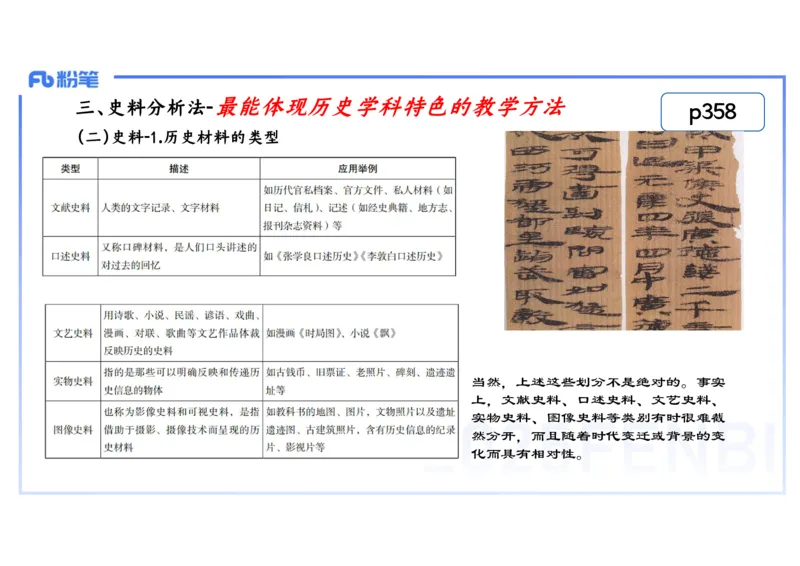 粉笔
三、史料分析法-最能体现历史学科特色的教学方法
p358
(二)史料-1.历史材料的类型
类型 描述 应用举例
文献史料 人类的文字记录、文字材料 如历代官私档案、官方文件、私人材料（如
日记、信札）、记述（如经史典籍、地方志、
报刊杂志资料）等
口述史料 又称口碑材料，是人们口头讲述的
对过去的回忆 如《张学良口述历史》《李敦白口述历史》
文艺史料 用诗歌、小说、民谣、谚语、戏曲、
漫画、对联、歌曲等文艺作品体裁
反映历史的史料 如漫画《时局图》、小说《飘》
实物史料 指的是那些可以明确反映和传递历
史信息的物体 如古钱币、旧票证、老照片、碑刻、遗迹遗
址等
图像史料 也称为影像史料和可视史料，是指
借助于摄影、摄像技术而呈现的历
史材料 如教科书的地图、图片，文物照片以及遗址
遗迹图、古建筑照片，含有历史信息的纪录
片、影视片等
当然，上述这些划分不是绝对的。事实
上，文献史料、口述史料、文艺史料、
实物史料、图像史料等类别有时很难截
然分开，而且随着时代变迁或背景的变
化而具有相对性。